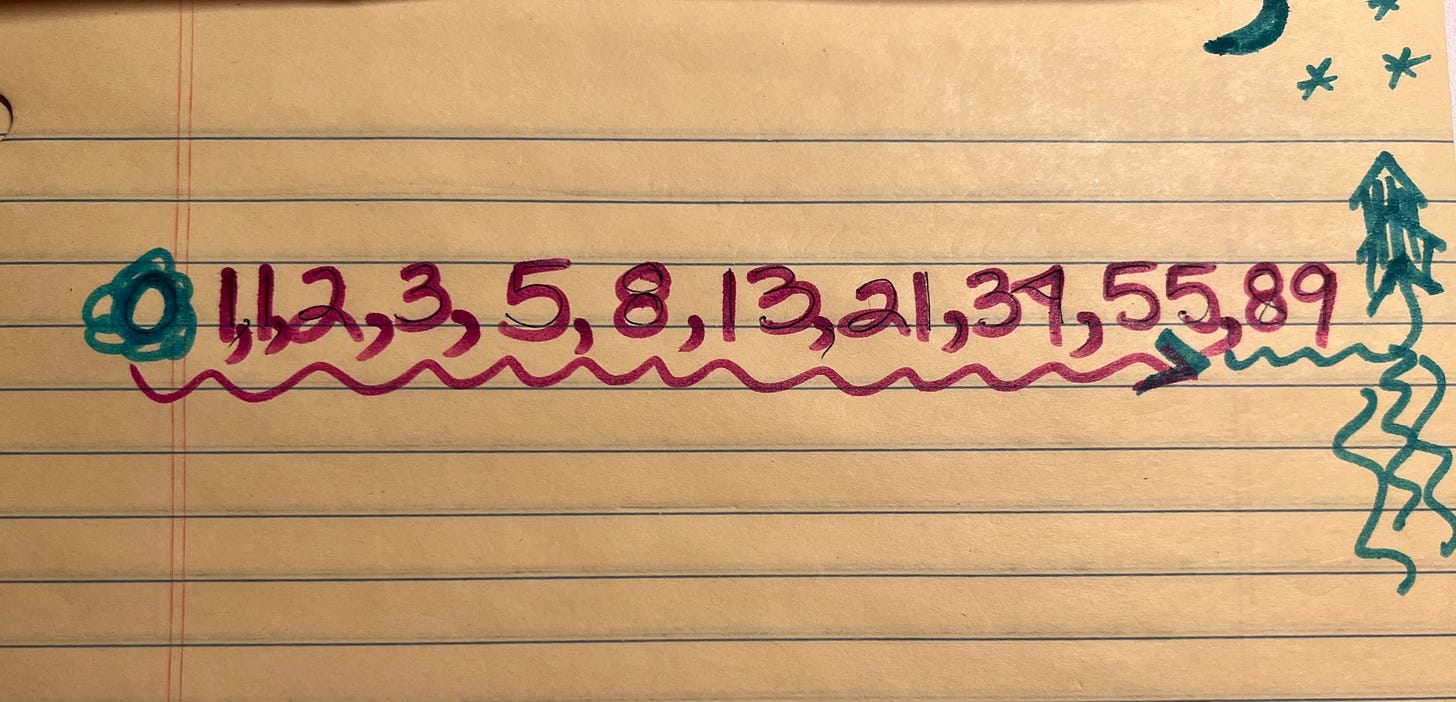 0 1,1,2,3,5,8,13,21,34,55,89